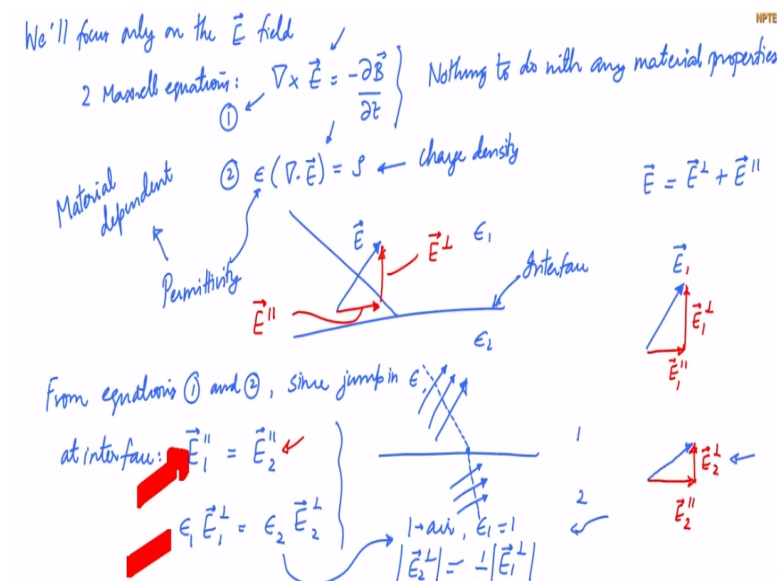 NPTE
We'll focus only on the E⃗ field
2 Maxwell equations: ∇ × E⃗ = -∂B⃗/∂t } Nothing to do with any material properties
①
② ϵ (∇. E⃗) = ρ ← charge density
Material dependent
E⃗ = E⃗^⊥ + E⃗^||
Permittivity
E⃗ E⃗^⊥ ϵ₁
Interface
E⃗^||
ϵ₂
E⃗₁ E⃗₁^⊥
E⃗₁^||
From equations ① and ②, since jump in ϵ
at interface: E⃗₁^|| = E⃗₂^||
1
E⃗₂^⊥
E⃗₂^||
2
ϵ₁ E⃗₁^⊥ = ϵ₂ E⃗₂^⊥
1→air, ϵ₁ = 1
|E⃗₂^⊥| = 1 |E⃗₁^⊥|